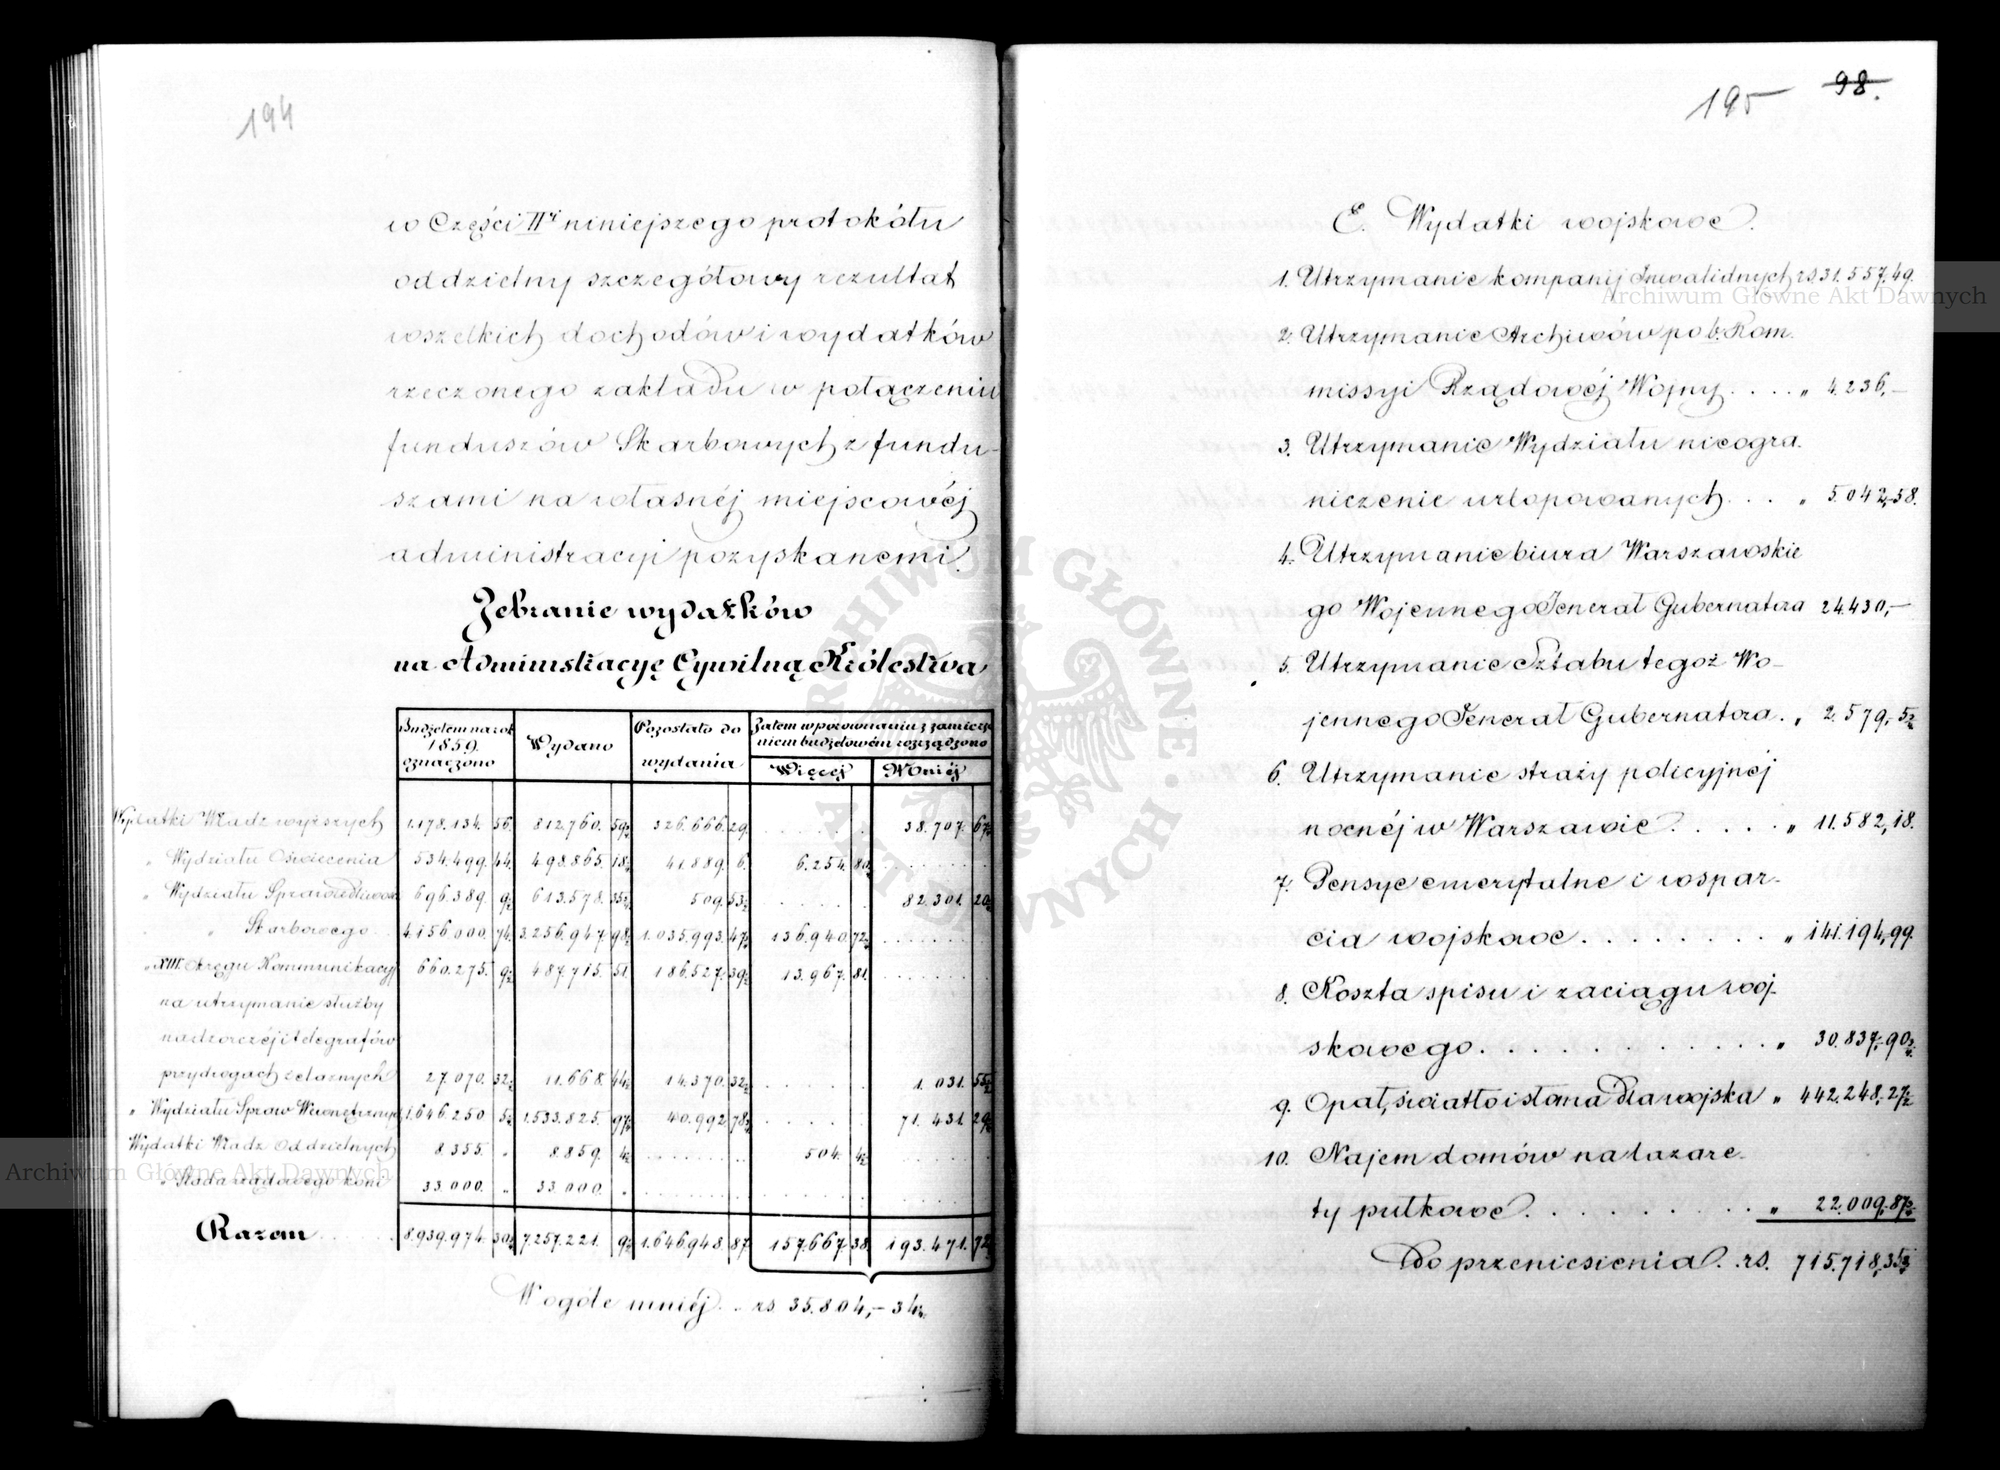 194
w Części IIéj niniejszego protokółu
oddzielny szczegółowy rezultat
wszelkich dochodów i wydatków
rzeczonego zakładu w połączeniu
funduszów Skarbowych z fundu-
szami na własnéj miejscowéj
administracyi pozyskanemi.
Zebranie wydatków
na Administracyę Cywilną Królestwa
Budżetem na rok 1859 oznaczono | Wydano | Pozostało do wydania | Zatem w porównaniu z zamieszczeniem budżetowém rozrządzono
Więcéj | Mniéj
Wydatki Władz wyższych 1.178.134. 56. 812.760. 59½ 326.666. 29. 38.707. 67½
„ Wydziału Oświecenia 534.499. 44. 498.865. 18½ 41.889. 6. 6.254. 80½
„ Wydziału Sprawiedliwości 696.389. 9½ 613.578. 509. 53½ 82.301. 20½
„ Skarbowego 4.156.000. 74. 3.256.947. 98½ 1.035.993. 47½ 136.940. 72
„ XIII. Okręgu Kommunikacyj 660.275. 9½ 487.715. 51. 186.527. 39½ 13.967. 81.
na utrzymanie służby
nadzorczéj i telegrafów
przy drogach żelaznych 27.070. 32½ 11.668. 44½ 14.370. 32½ 1.031. 55½
„ Wydziału Spraw Wewnętrznych 1.646.250 5½ 1.533.825. 97½ 40.992 78½ 71.431. 29½
Wydatki Władz Oddzielnych 8.355. „ 8.859. 4½ 504. 4½
„ Stada rządowego koni 33.000. „ 33.000. „
Razem 8.939.974. 30½ 7.257.221. 9½ 1.646.948. 87. 157.667. 38. 193.471. 72
W ogóle mniéj .. rs 35.804,- 34½
195 98.
E. Wydatki wojskowe.
1. Utrzymanie kompanij Inwalidnych rs. 31.557,49.
2. Utrzymanie Archiwów po b. Kom.
missyi Rządowéj Wojny . . . . „ 4.236,—
3. Utrzymanie Wydziału nieogra.
niczenie urlopowanych . . . „ 5.042,58.
4. Utrzymanie biura Warszawskie
go Wojennego Jenerał Gubernatora 24.430,—
5. Utrzymanie Sztabu tegoż Wo-
jennego Jenerał Gubernatora. „ 2.579,5½
6. Utrzymanie straży policyjnéj
nocnéj w Warszawie . . . . . „ 11.582,18.
7. Pensye emerytalne i wspar-
cia wojskowe . . . . . . . . „ 141.194,99.
8. Koszta spisu i zaciągu woj-
skowego . . . . . . . . . . . „ 30.837,90¾
9. Opał, światło i słoma dla wojska „ 442.248,27½
10. Najem domów na lazare-
ty pułkowe . . . . . . . . . „ 22.009,87½
Do przeniesienia . rs. 715.718,35¾
Archiwum Główne Akt Dawnych
Archiwum Główne Akt Dawnych
ARCHIWUM GŁÓWNE AKT DAWNYCH